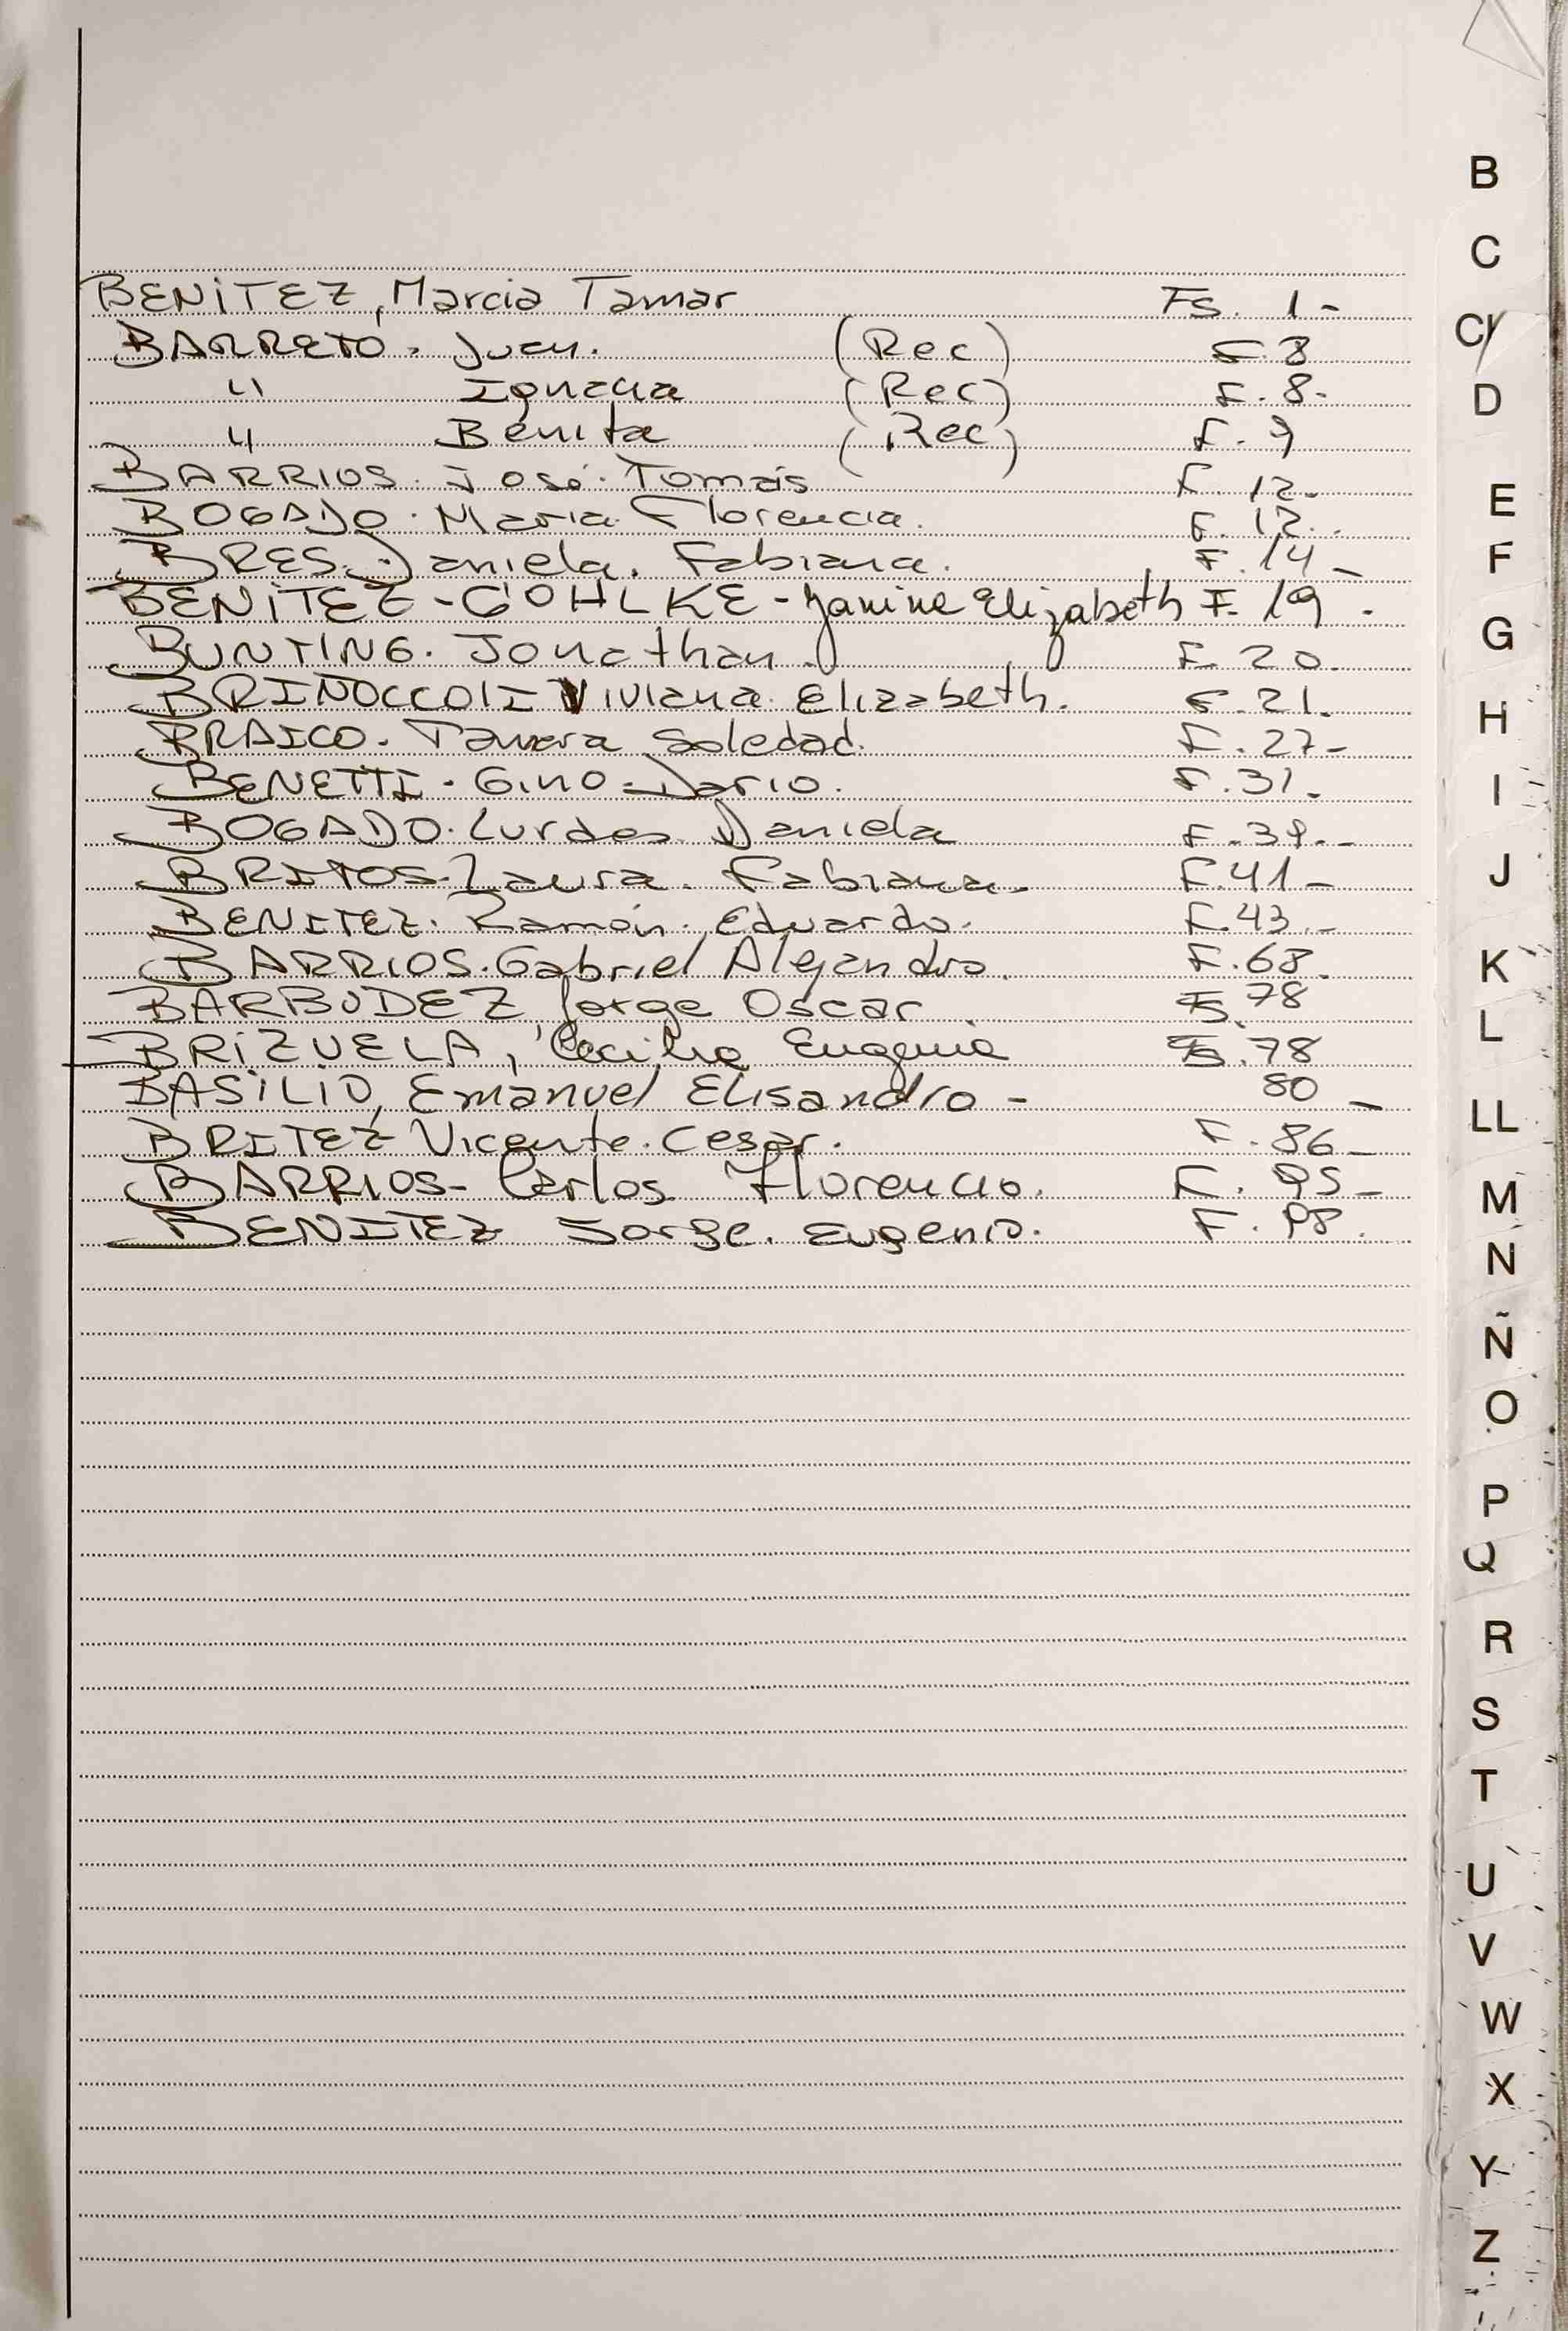 BENITEZ, Marcia Tamar Fs. 1-
BARRETO. Juan. (Rec) F. 8
" Ignacia (Rec) F. 8-
" Benita (Rec) F. 9
BARRIOS. José. Tomás F. 12-
BOGADO. Maria Florencia. F. 12.
BRES. Daniela. Fabiana. F. 14-
BENITEZ - GOHLKE - Janine Elizabeth F. 19.
BUNTING. Jonathan. F. 20.
BRINOCCOLI Viviana Elizabeth. F. 21.
BRAICO. Tamara Soledad. F. 27-
BENETTI. Gino Dario. F. 31.
BOGADO. Lurdes Daniela F. 39.-
BRITOS. Laura. Fabiana. F. 41-
BENITEZ. Ramón. Eduardo. F. 43.-
BARRIOS. Gabriel Alejandro. F. 68.
BARBUDEZ, Jorge Oscar Fs. 78
BRIZUELA, Cecilia Eugenia Fs. 78
BASILIO, Emanuel Elisandro - 80-
BRITEZ Vicente. Cesar. F. 86-
BARRIOS- Carlos Florencio. F. 95-
BENITEZ Jorge. Eugenio. F. 98.
B
C
CH
D
E
F
G
H
I
J
K
L
LL
M
N
Ñ
O
P
Q
R
S
T
U
V
W
X
Y
Z